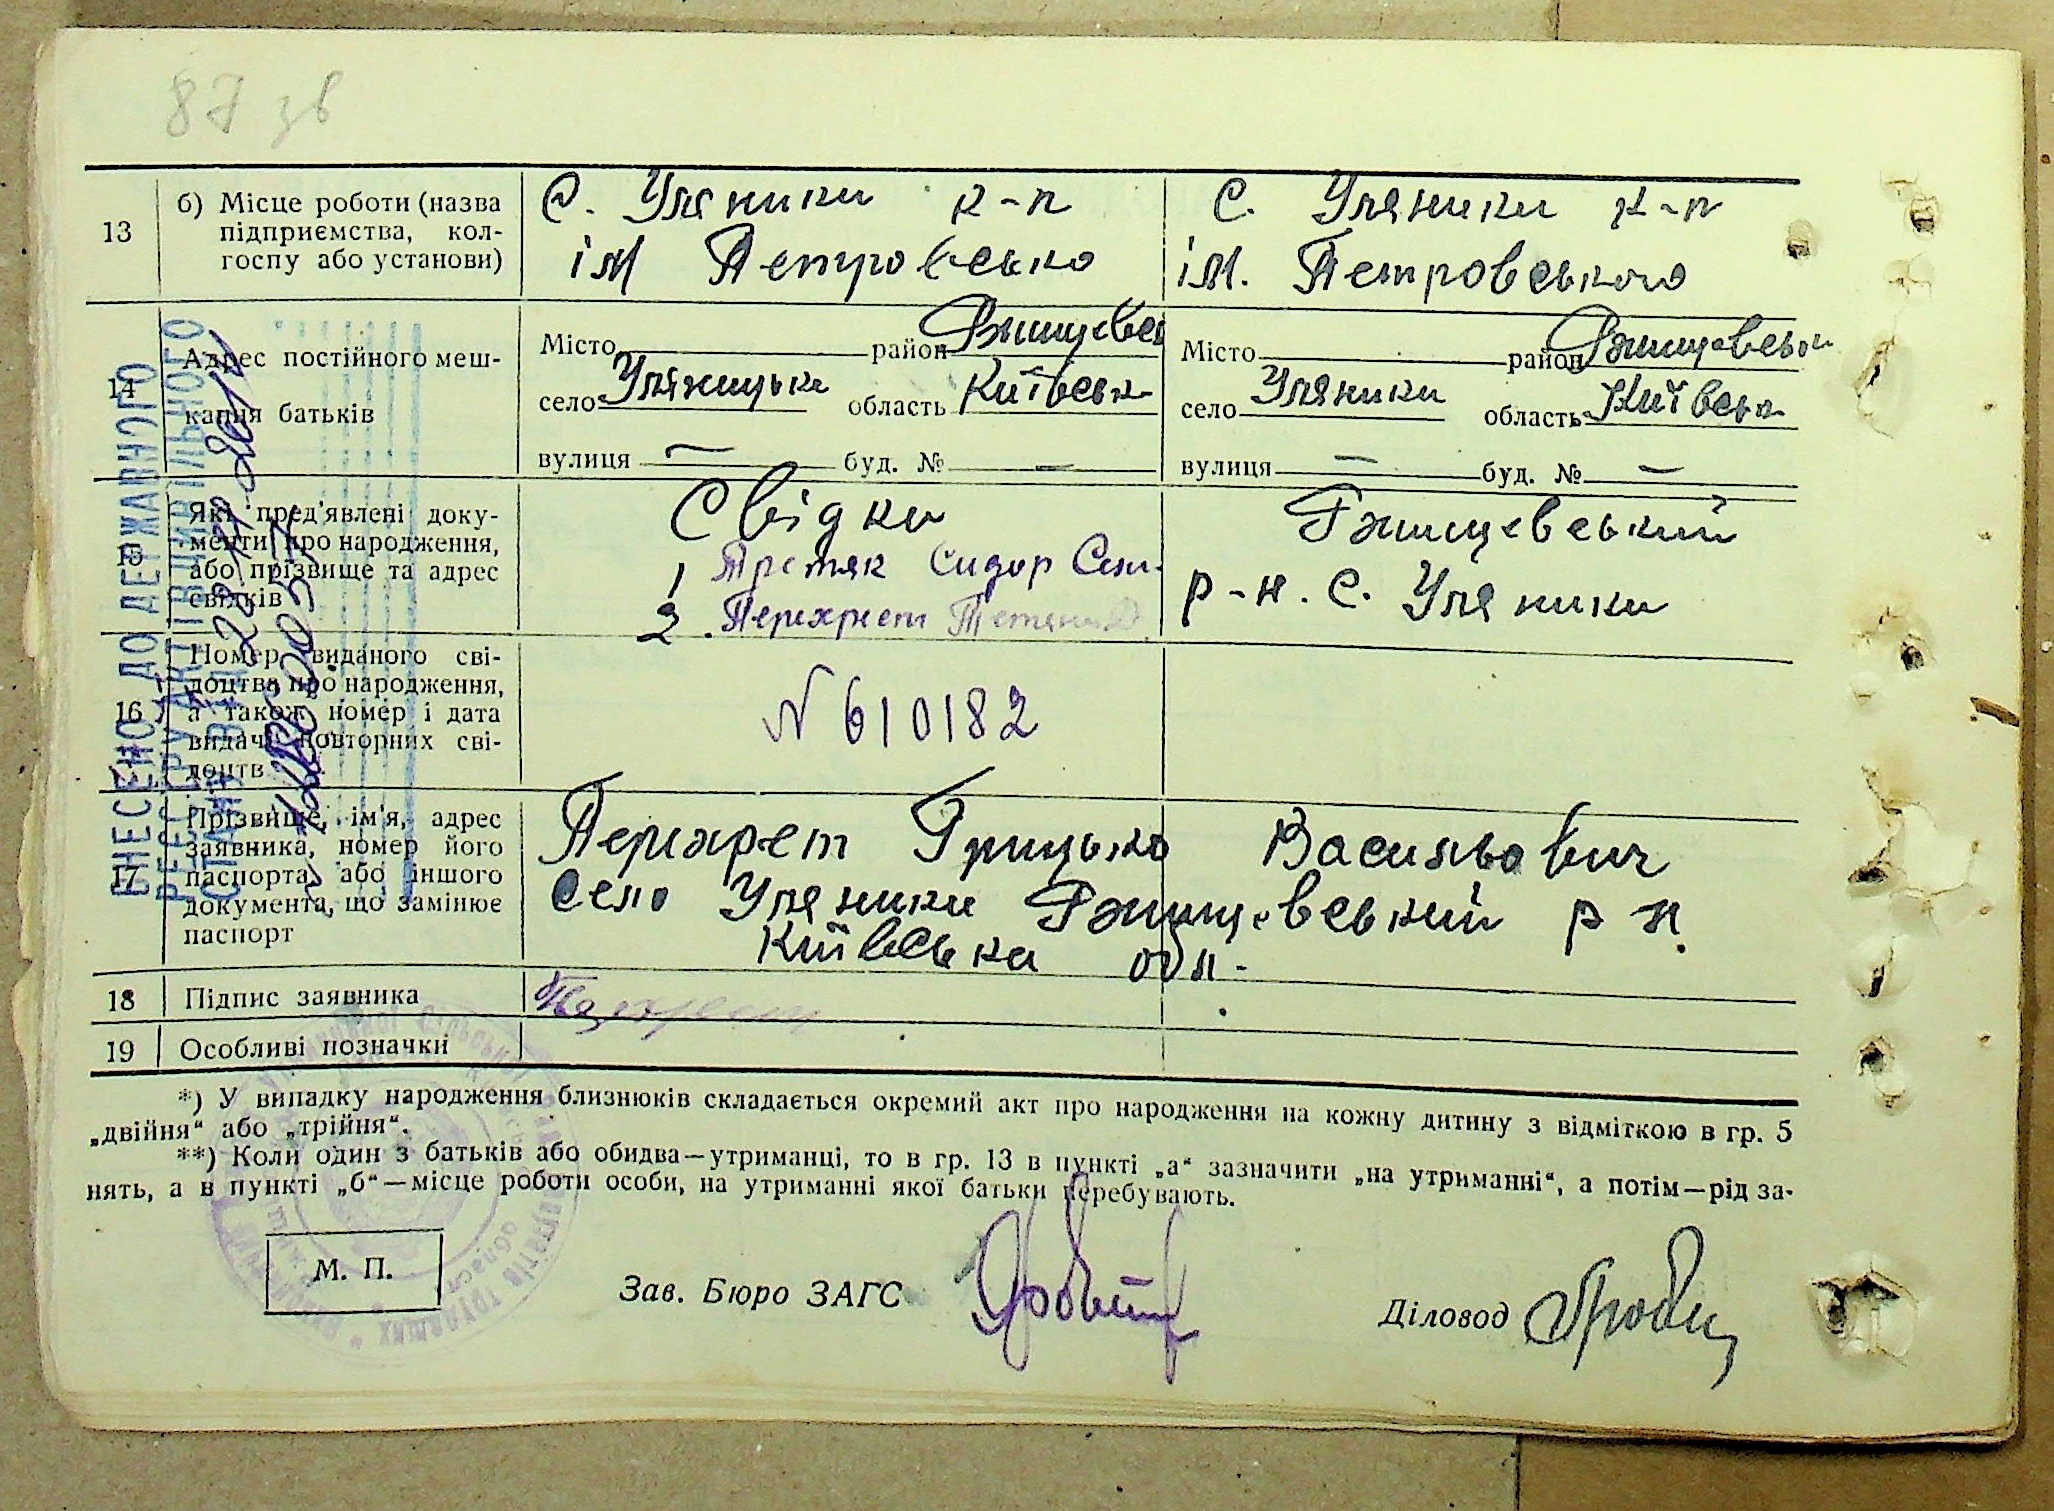 87 зв
13
б) Місце роботи (назва підприємства, колгоспу або установи)
с. Уляники к-п
ім Петровсько
с. Уляники к-п
ім. Петровського
14
Адрес постійного меш-
кання батьків
Місто район Ржищевсь
село Уляницька область Київськ
вулиця — буд. № —
Місто район Ржищевськ
село Уляники область Київська
вулиця — буд. № —
15
Які пред'явлені доку-
менти про народження,
або прізвище та адрес
свідків
Свідки
1 Третяк Сидор Сем.
2. Перехрест Тетяна
Ржищевський
р-н. с. Уляники
16
Номер виданого сві-
доцтва про народження,
а також номер і дата
видачі повторних сві-
доцтв
N 610182
17
Прізвище, ім'я, адрес
заявника, номер його
паспорта або іншого
документа, що замінює
паспорт
Перехрест Грицько Васильович
село Уляники Ржищевський р н.
Київська обл.
18
Підпис заявника
Перехрест
19
Особливі позначки
*) У випадку народження близнюків складається окремий акт про народження на кожну дитину з відміткою в гр. 5
„двійня“ або „трійня“.
**) Коли один з батьків або обидва—утриманці, то в гр. 13 в пункті „а“ зазначити „на утриманні“, а потім—рід за-
нять, а в пункті „б“—місце роботи особи, на утриманні якої батьки перебувають.
М. П.
Зав. Бюро ЗАГС
Діловод
ВНЕСЕНО ДО ДЕРЖАВНОГО
РЕЄСТРУ АКТІВ ЦИВІЛЬНОГО
СТАНУ